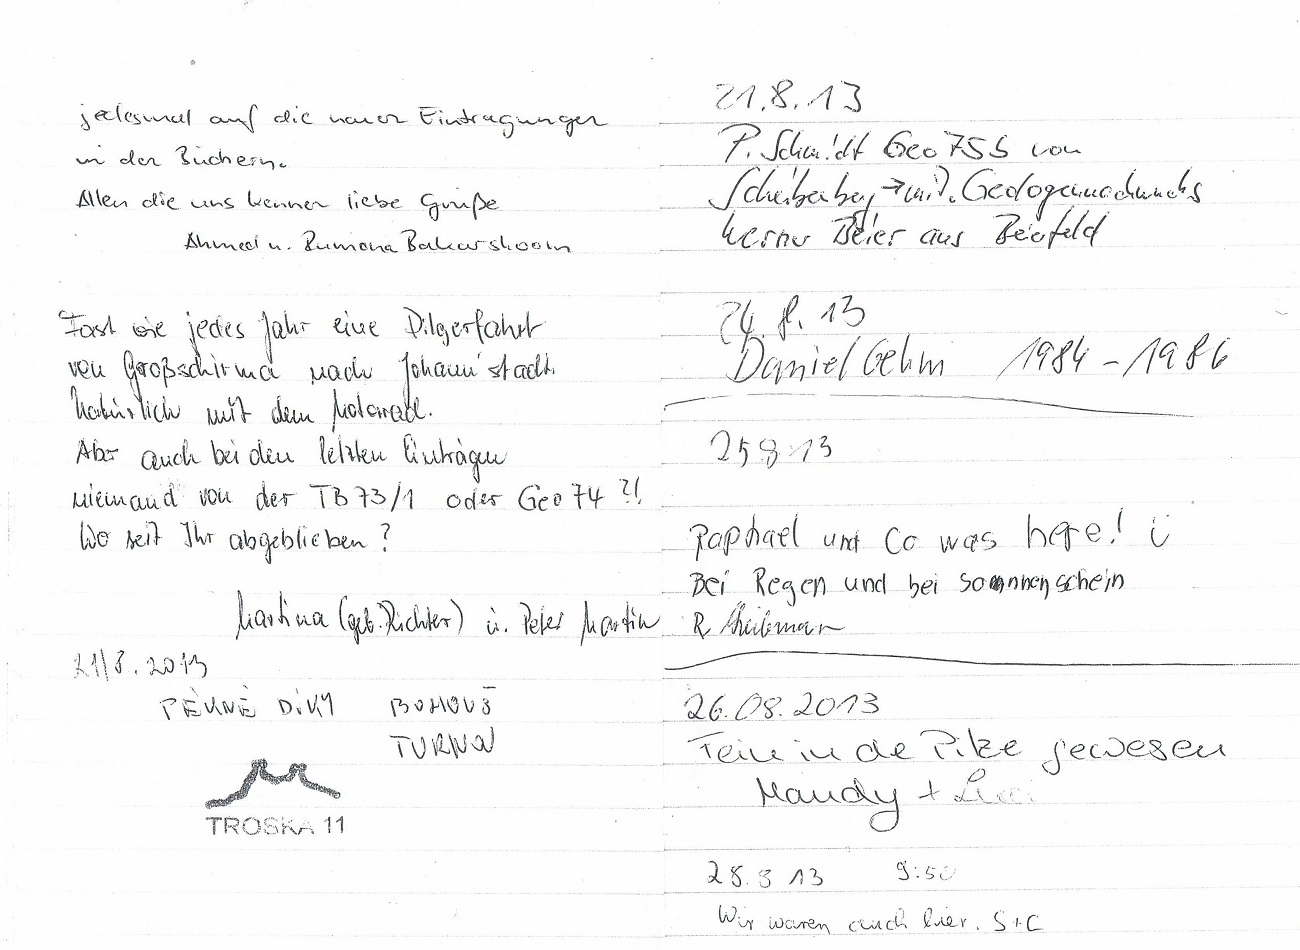 jedesmal auf die neuen Eintragungen
in den Büchern.
Allen die uns kennen liebe Grüße
Ahmed u. Bakarshoom
Fast wie jedes Jahr eine Pilgerfahrt
von Großschirma nach Johann'stadt.
Natürlich mit dem Motorrad.
Aber auch bei den letzten Einträgen
niemand von der TB73/1 oder Geo 74 ?!
Wo seit Ihr abgeblieben?
Martina (geb. Richter) u. Peter Martin
21/8.2013
PĚKNĚ DÍKY BOHOUŠ
TURNOV
TROSKA 11
21.8.13
P. Schmidt Geo 75S von
Scheibenberg → mit
Werner Beier aus Beierfeld
24.8.13
Daniel Gehm 1984 - 1986
25 8 13
Raphael und Co was here!
Bei Regen und bei Sonnenschein
R.
26.08.2013
Fein in de Pilze gewesen
Mandy +
28.8 13 9:50
Wir waren auch hier. S+C